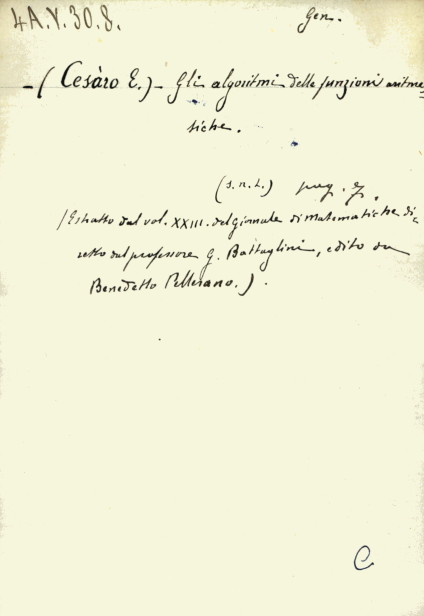 4A.V.30.8.
Gen.
- (Cesàro E.) - Gli algoritmi delle funzioni aritme-
tiche.
(s.n.t.) pag.
(Estratto dal vol. XXIII. del Giornale di Matematiche di-
retto dal professore G. Battaglini, edito da
Benedetto Pellerano.).
C